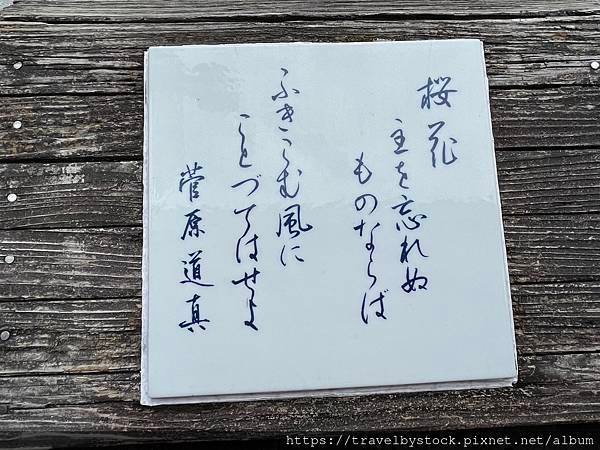 桜花
主を忘れぬ
ものならば
ふきこむ風に
ことづてはせよ
菅原道真
https://travelbystock.pixnet.net/album